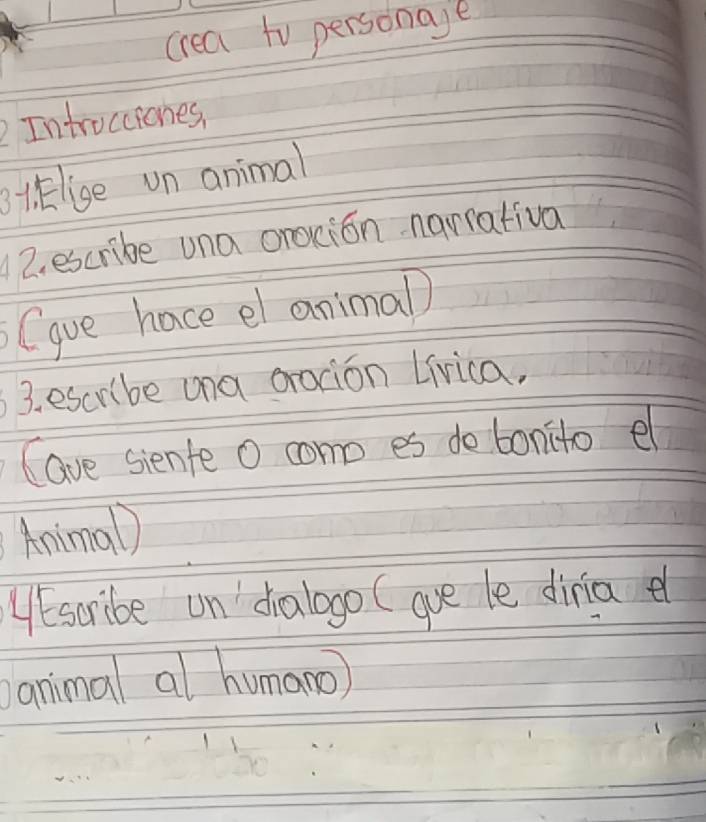 crea tu personaje
2 Introcciones,
3 1. Elige un animal
4 2. escribe una oración narrativa
(que hace el animal)
3. escribe una oración Lírica.
(Que siente o como es de bonito el
Animal)
4 Escribe un dialogo (que le diria el
animal al humano)